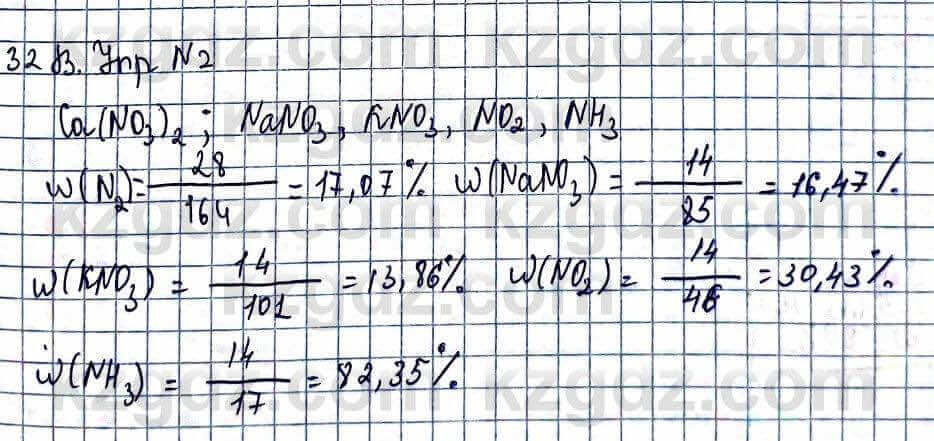 32 В. Упр N2
Ca(NO3)2; NaNO3, KNO3, NO2, NH3
w(N2)= 28/164 = 17,07% w(NaNO3) = 14/85 = 16,47%
w(KNO3) = 14/101 = 13,86% w(NO2)= 14/46 = 30,43%
w(NH3) = 14/17 = 82,35%
kzgdz.com